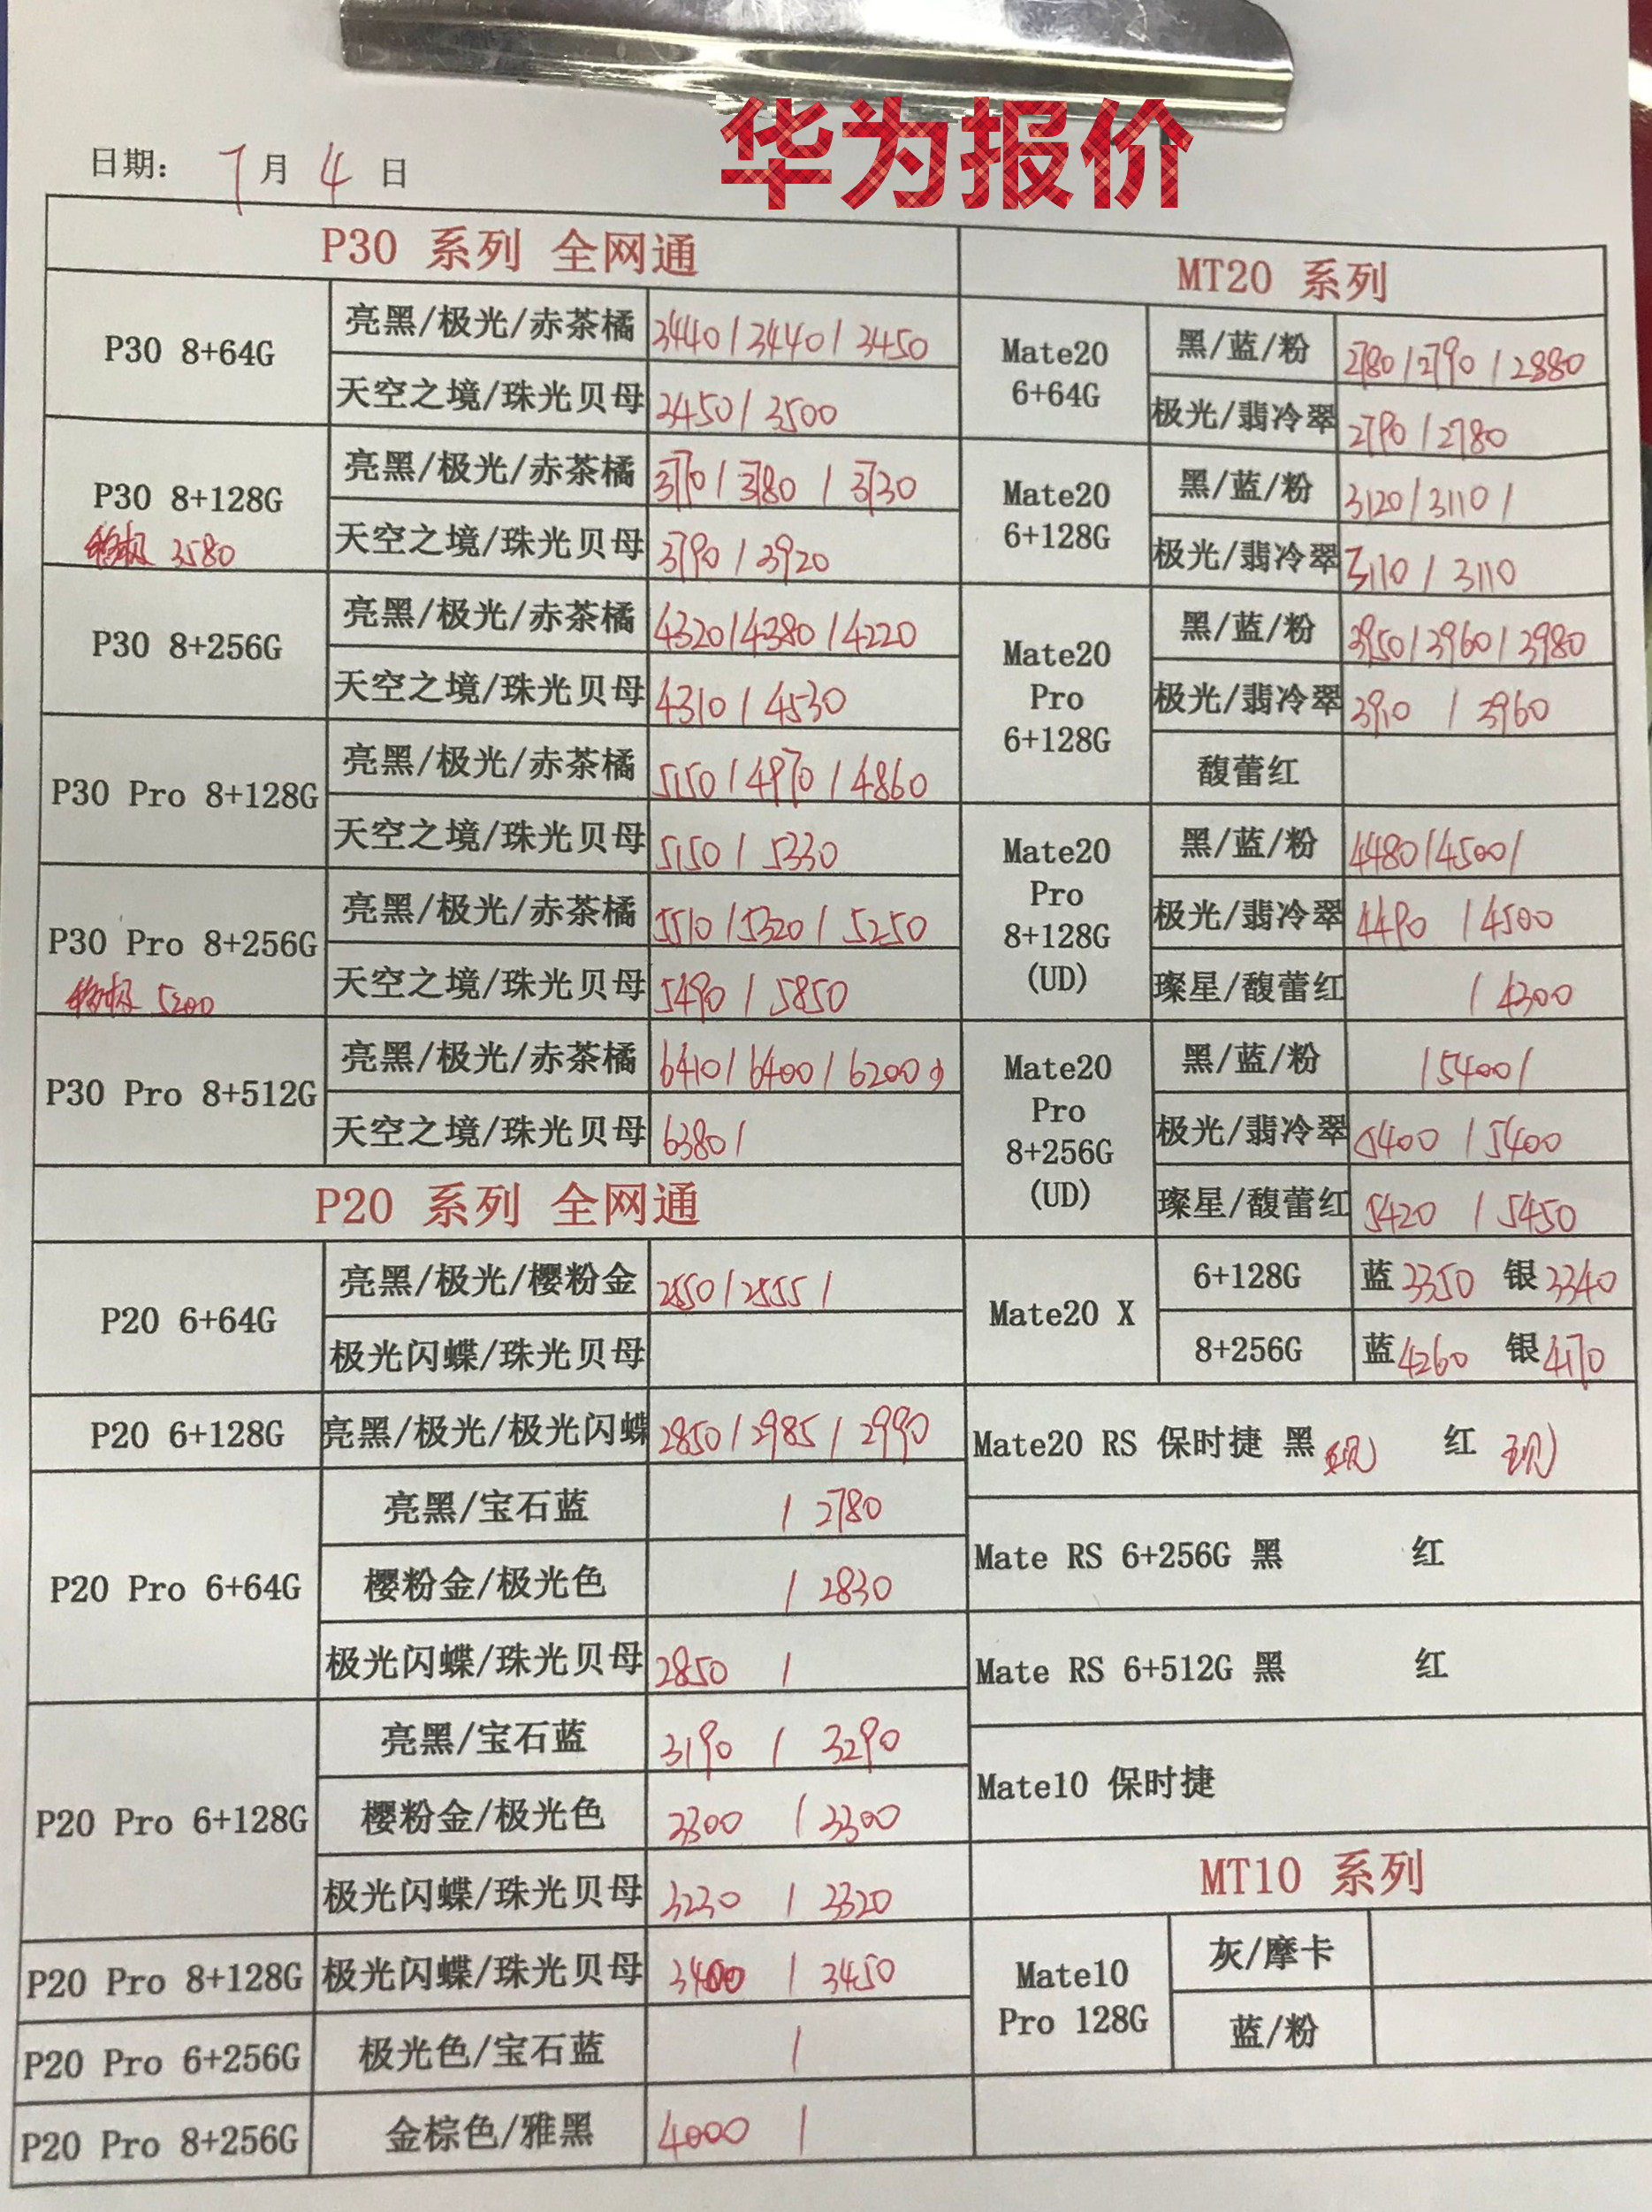 华为报价
日期: 7月4日
P30 系列 全网通
P30 8+64G
亮黑/极光/赤茶橘 3440/3440/3450
天空之境/珠光贝母 3450/3500
P30 8+128G
3580
亮黑/极光/赤茶橘 3770/3780/3730
天空之境/珠光贝母 3790/3920
P30 8+256G
亮黑/极光/赤茶橘 4320/4380/4220
天空之境/珠光贝母 4310/4530
P30 Pro 8+128G
亮黑/极光/赤茶橘 5150/4970/4860
天空之境/珠光贝母 5150/5330
P30 Pro 8+256G
5200
亮黑/极光/赤茶橘 5510/5320/5250
天空之境/珠光贝母 5490/5850
P30 Pro 8+512G
亮黑/极光/赤茶橘 6410/6400/6200
天空之境/珠光贝母 6380/
P20 系列 全网通
P20 6+64G
亮黑/极光/樱粉金 2550/2555/
极光闪蝶/珠光贝母
P20 6+128G
亮黑/极光/极光闪蝶 2850/2985/2990
P20 Pro 6+64G
亮黑/宝石蓝 /2780
樱粉金/极光色 /2830
极光闪蝶/珠光贝母 2850/
P20 Pro 6+128G
亮黑/宝石蓝 3190/3290
樱粉金/极光色 3300/3300
极光闪蝶/珠光贝母 3230/3320
P20 Pro 8+128G
极光闪蝶/珠光贝母 3400/3450
P20 Pro 6+256G
极光色/宝石蓝 /
P20 Pro 8+256G
金棕色/雅黑 4000/
MT20 系列
Mate20
6+64G
黑/蓝/粉 2780/2790/2880
极光/翡冷翠 2790/2780
Mate20
6+128G
黑/蓝/粉 3120/3110/
极光/翡冷翠 3110/3110
Mate20
Pro
6+128G
黑/蓝/粉 3950/3960/3980
极光/翡冷翠 3910/3960
馥蕾红
Mate20
Pro
8+128G
(UD)
黑/蓝/粉 4480/4500/
极光/翡冷翠 4490/4500
璨星/馥蕾红 /4300
Mate20
Pro
8+256G
(UD)
黑/蓝/粉 /5400/
极光/翡冷翠 5400/5400
璨星/馥蕾红 5420/5450
Mate20 X
6+128G 蓝3350 银3340
8+256G 蓝4260 银4170
Mate20 RS 保时捷 黑 现 红 现
Mate RS 6+256G 黑 红
Mate RS 6+512G 黑 红
Mate10 保时捷
MT10 系列
Mate10
Pro 128G
灰/摩卡
蓝/粉